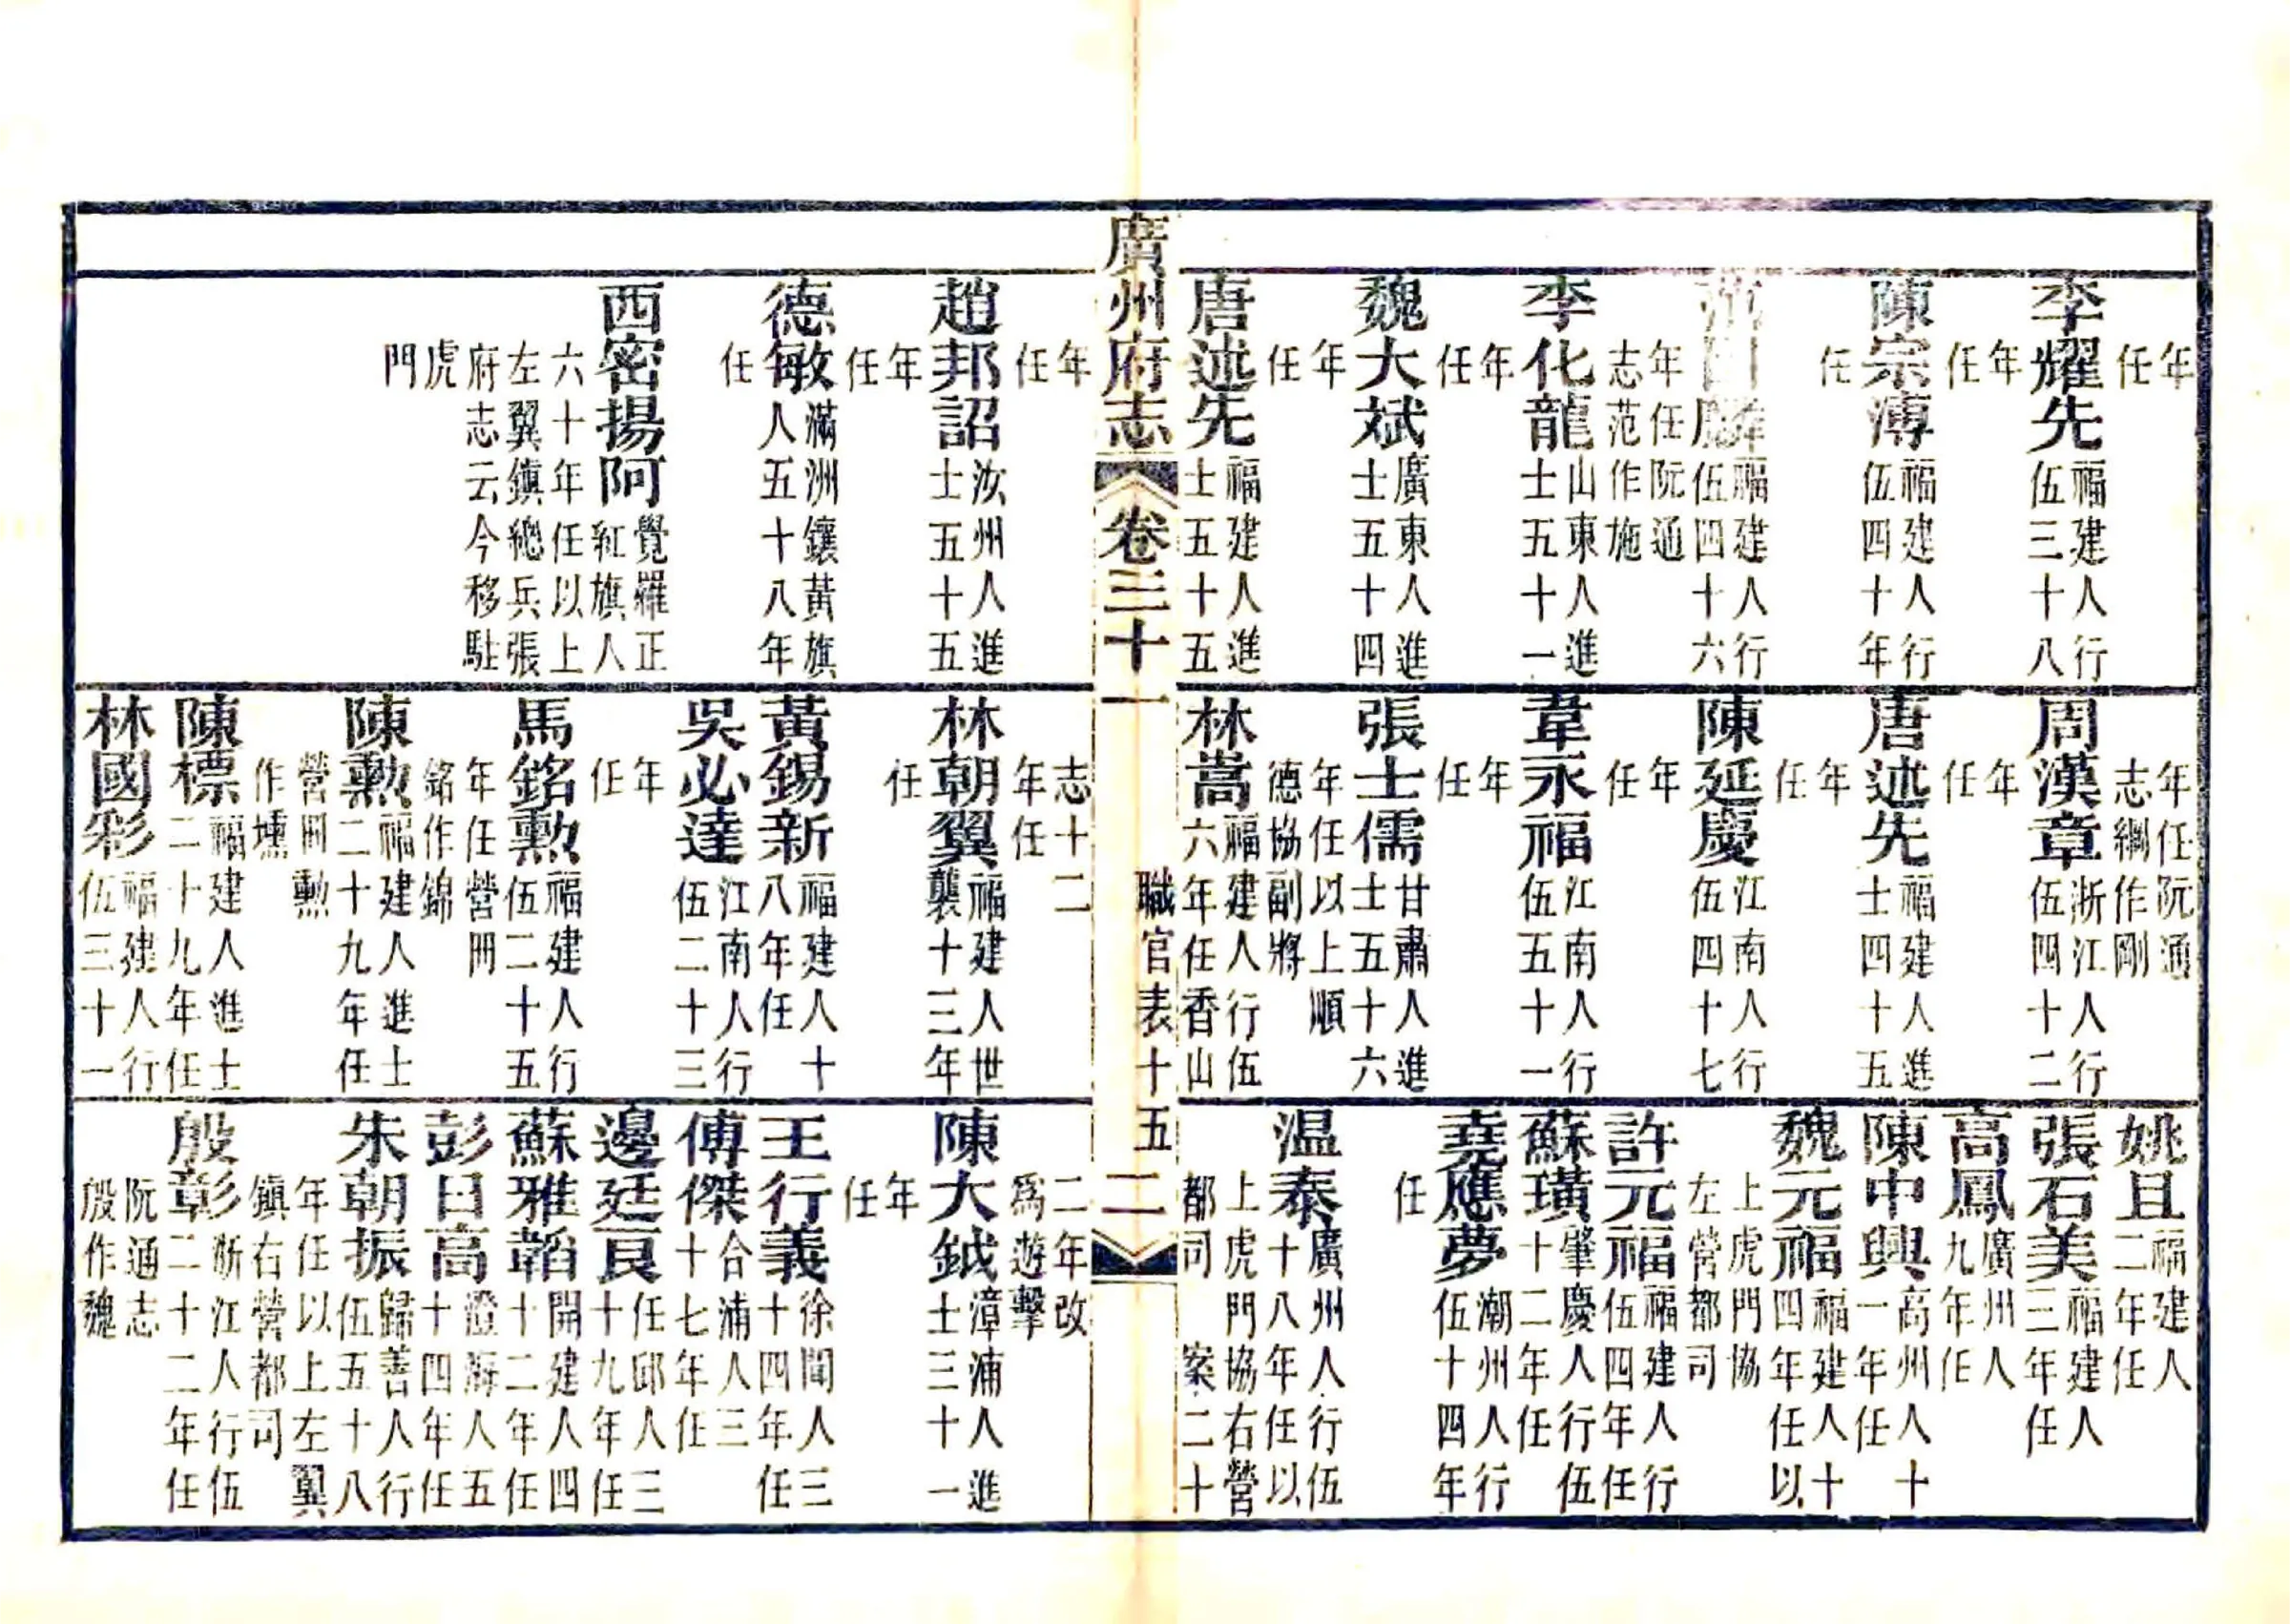 年任
李耀先福建人行伍三十八
年任
陳宗溥福建人行伍四十年
任
福建人行伍四十六
年任阮通志范作施
李化龍山東人進士五十一
年任
魏大斌廣東人進士五十四
年任
唐述先福建人進士五十五
年任阮通志綱作剛
周漢章浙江人行伍四十二
年任
唐述先福建人進士四十五
年任
陳延慶江南人行伍四十七
年任
韋永福江南人行伍五十一
年任
張士儒甘肅人進士五十六
年任以上順德協副將
林嵩福建人行伍六年任香山
姚且福建人二年任
張石美福建人三年任
高鳳廣州人九年任
陳中興高州人十一年任
魏元福福建人十四年任以
上虎門協左營都司
許元福福建人行伍四年任
蘇璜肇慶人行伍十二年任
堯應夢潮州人行伍十四年
任
温泰廣州人行伍十八年任以
上虎門協右營都司 案二十
廣州府志 卷三十一 職官表十五 二
年任
趙邦詔汝州人進士五十五
年任
德敏滿洲鑲黃旗人五十八年
任
西密揚阿覺羅正紅旗人
六十年任以上左翼鎮總兵張
府志云今移駐虎門
志十二年任
林朝翼福建人世襲十三年
任
黃錫新福建人十八年任
吳必達江南人行伍二十三
年任
馬銘勲福建人行伍二十五
年任營冊銘作錦
陳勲福建人進士二十九年任
營冊勲作壎
陳標福建人進士二十九年任
林國彩福建人行伍三十一
二年改爲遊擊
陳大鉞漳浦人進士三十一
年任
王行義徐聞人三十四年任
傅傑合浦人三十七年任
邊廷艮任邱人三十九年任
蘇雅韜開建人四十二年任
彭日高澄海人五十四年任
朱朝振歸善人行伍五十八
年任以上左翼鎮右營都司
殷彰浙江人行伍二十二年任
阮通志殷作魏